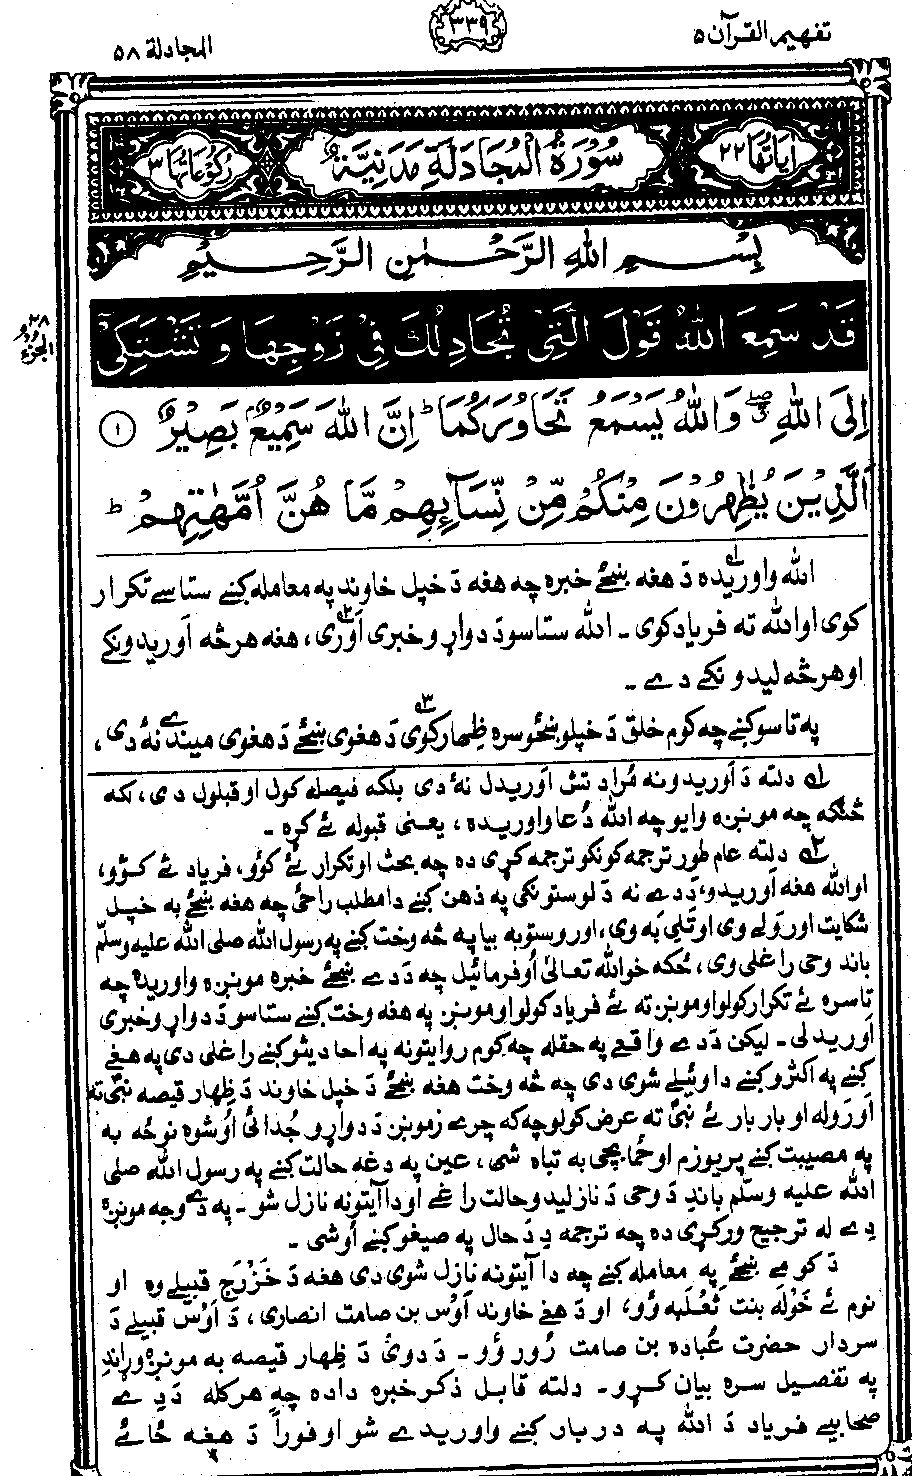 تفهیم القرآن ۵
۳۳۹
المجادلة ۵۸
اٰیَاتُهَا ۲۲
سُوْرَةُ الْمُجَادَلَةِ مَدَنِيَّةٌ
رُكُوْعَاتُهَا ۳
بِسْمِ اللهِ الرَّحْمٰنِ الرَّحِيْمِ
۲۸ الجزء
قَدْ سَمِعَ اللهُ قَوْلَ الَّتِيْ تُجَادِلُكَ فِيْ زَوْجِهَا وَ تَشْتَكِيْٓ
اِلَى اللهِ ۖ وَاللهُ يَسْمَعُ تَحَاوُرَكُمَا ؕ اِنَّ اللهَ سَمِيْعٌۢ بَصِيْرٌ ۝۱
اَلَّذِيْنَ يُظٰهِرُوْنَ مِنْكُمْ مِّنْ نِّسَآئِهِمْ مَّا هُنَّ اُمَّهٰتِهِمْ ؕ
الله واوریده ۱ دَ هغه ښځے خبره چه هغه دَ خپل خاوند په معامله کښے ستا سے تکرار
کوی او الله ته فریاد کوی ۔ الله ستاسو دَ دواړو خبری اَوری ۲، هغه هر څه اَوریدونکے
او هر څه لیدونکے دے ۔
په تاسو کښے چه کوم خلق دَ خپلو ښځو سره ظِهار کوی ۳ دَ هغوی ښځے دَ هغوی میندے نهٔ دی،
۱ دلته دَ اَوریدو نه مُراد تش اَوریدل نهٔ دی بلکه فیصله کول او قبلول دی، لکه
څنګه چه مونږه وایو چه الله دُعا واوریده، یعنی قبوله ئے کړه ۔
۲ دلته عام طور ترجمه کونکو ترجمه کړی ده چه بحث او تکرار ئے کوؤ، فریاد ئے کوؤ،
او الله هغه اَوریدو، دَ دے نه دَ لوستونکی په ذهن کښے دا مطلب راځی چه هغه ښځے به خپل
شکایت اورَولے وی او تلی به وی، اور وستو به بیا په څه وخت کښے په رسول الله صلی الله علیه وسلم
باند وحی راغلی وی، ځکه خو الله تعالیٰ اُوفرمائیل چه دَ دے ښځے خبره مونږه واوریده چه
تا سره ئے تکرار کولو او مونږ ته ئے فریاد کولو او مونږ په هغه وخت کښے ستاسو دَ دواړو خبری
اَوریدلی ۔ لیکن دَ دے واقعے په حقله چه کوم روایتونه په احادیثو کښے راغلی دی په هغے
کښے په اکثرو کښے دا وئیلے شوی دی چه څه وخت هغه ښځے دَ خپل خاوند دَ ظِهار قیصه نبیؐ ته
اورَوله او بار بار ئے نبیؐ ته عرض کولو چه که چرے زمونږ دَ دواړو جُدائی اُوشوه نو څه به
په مصیبت کښے پریوزم او ځما بچی به تباه شی، عین په دغه حالت کښے په رسول الله صلی
الله علیه وسلّم باند دَ وحی دَ نازلیدو حالت راغے او دا آیتونه نازل شو ۔ په دے وجه مونږه
دے له ترجیح ورکړی ده چه ترجمه دِ دَ حال په صیغو کښے اُوشی ۔
دَ کومے ښځے په معامله کښے چه دا آیتونه نازل شوی دی هغه دَ خَزْرَج قبیلے وه او
نوم ئے خَولَه بنت ثَعْلَبه وُو، او دَ هغے خاوند اَوْس بن صامت انصاری، دَ اَوْس قبیلے دَ
سردار حضرت عُباده بن صامت رُور وُو ۔ دَ دویٔ دَ ظِهار قیصه به مونږه وړاندِ
په تفصیل سره بیان کړو ۔ دلته قابل ذکر خبره داده چه هرکله دَ دِے
صحابیے فریاد دَ الله په دربار کښے واوریدے شو او فوراً دَ هغه ځائے